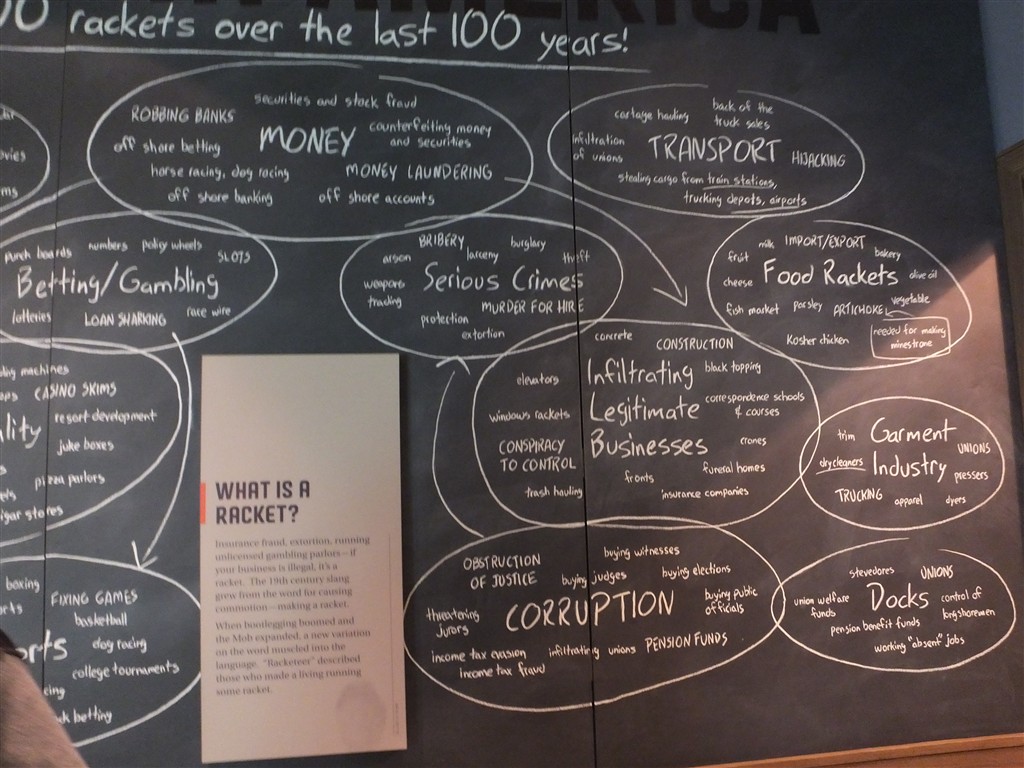 AMERICA
rackets over the last 100 years!
securities and stock fraud
ROBBING BANKS
MONEY
counterfeiting money
and securities
off shore betting
horse racing, dog racing
MONEY LAUNDERING
off shore banking
off shore accounts
cartage hauling
back of the
truck sales
infiltration
of unions
TRANSPORT
HIJACKING
stealing cargo from train stations,
trucking depots, airports
punch boards
numbers
policy wheels
SLOTS
Betting/Gambling
lotteries
LOAN SHARKING
race wire
BRIBERY
larceny
burglary
theft
arson
weapons
trading
Serious Crimes
MURDER FOR HIRE
protection
extortion
milk
IMPORT/EXPORT
bakery
fruit
cheese
Food Rackets
olive oil
fish market
parsley
ARTICHOKE
vegetable
Kosher chicken
needed for making
minestrone
concrete
CONSTRUCTION
elevators
Infiltrating
Legitimate
Businesses
black topping
correspondence schools
& courses
windows rackets
CONSPIRACY
TO CONTROL
cranes
fronts
funeral homes
trash hauling
insurance companies
trim
Garment
Industry
UNIONS
dry cleaners
pressers
TRUCKING
apparel
dyers
machines
CASINO SKIMS
resort development
juke boxes
pizza parlors
stores
boxing
FIXING GAMES
basketball
dog racing
college tournaments
betting
WHAT IS A
RACKET?
Insurance fraud, extortion, running
unlicensed gambling parlors—if
your business is illegal, it's a
racket. The 19th century slang
grew from the word for causing
commotion—making a racket.
When bootlegging boomed and
the Mob expanded, a new variation
on the word muscled into the
language. "Racketeer" described
those who made a living running
some racket.
OBSTRUCTION
OF JUSTICE
buying witnesses
buying judges
buying elections
threatening
jurors
CORRUPTION
buying public
officials
income tax evasion
income tax fraud
infiltrating unions
PENSION FUNDS
stevedores
UNIONS
union welfare
funds
Docks
control of
longshoremen
pension benefit funds
working "absent" jobs